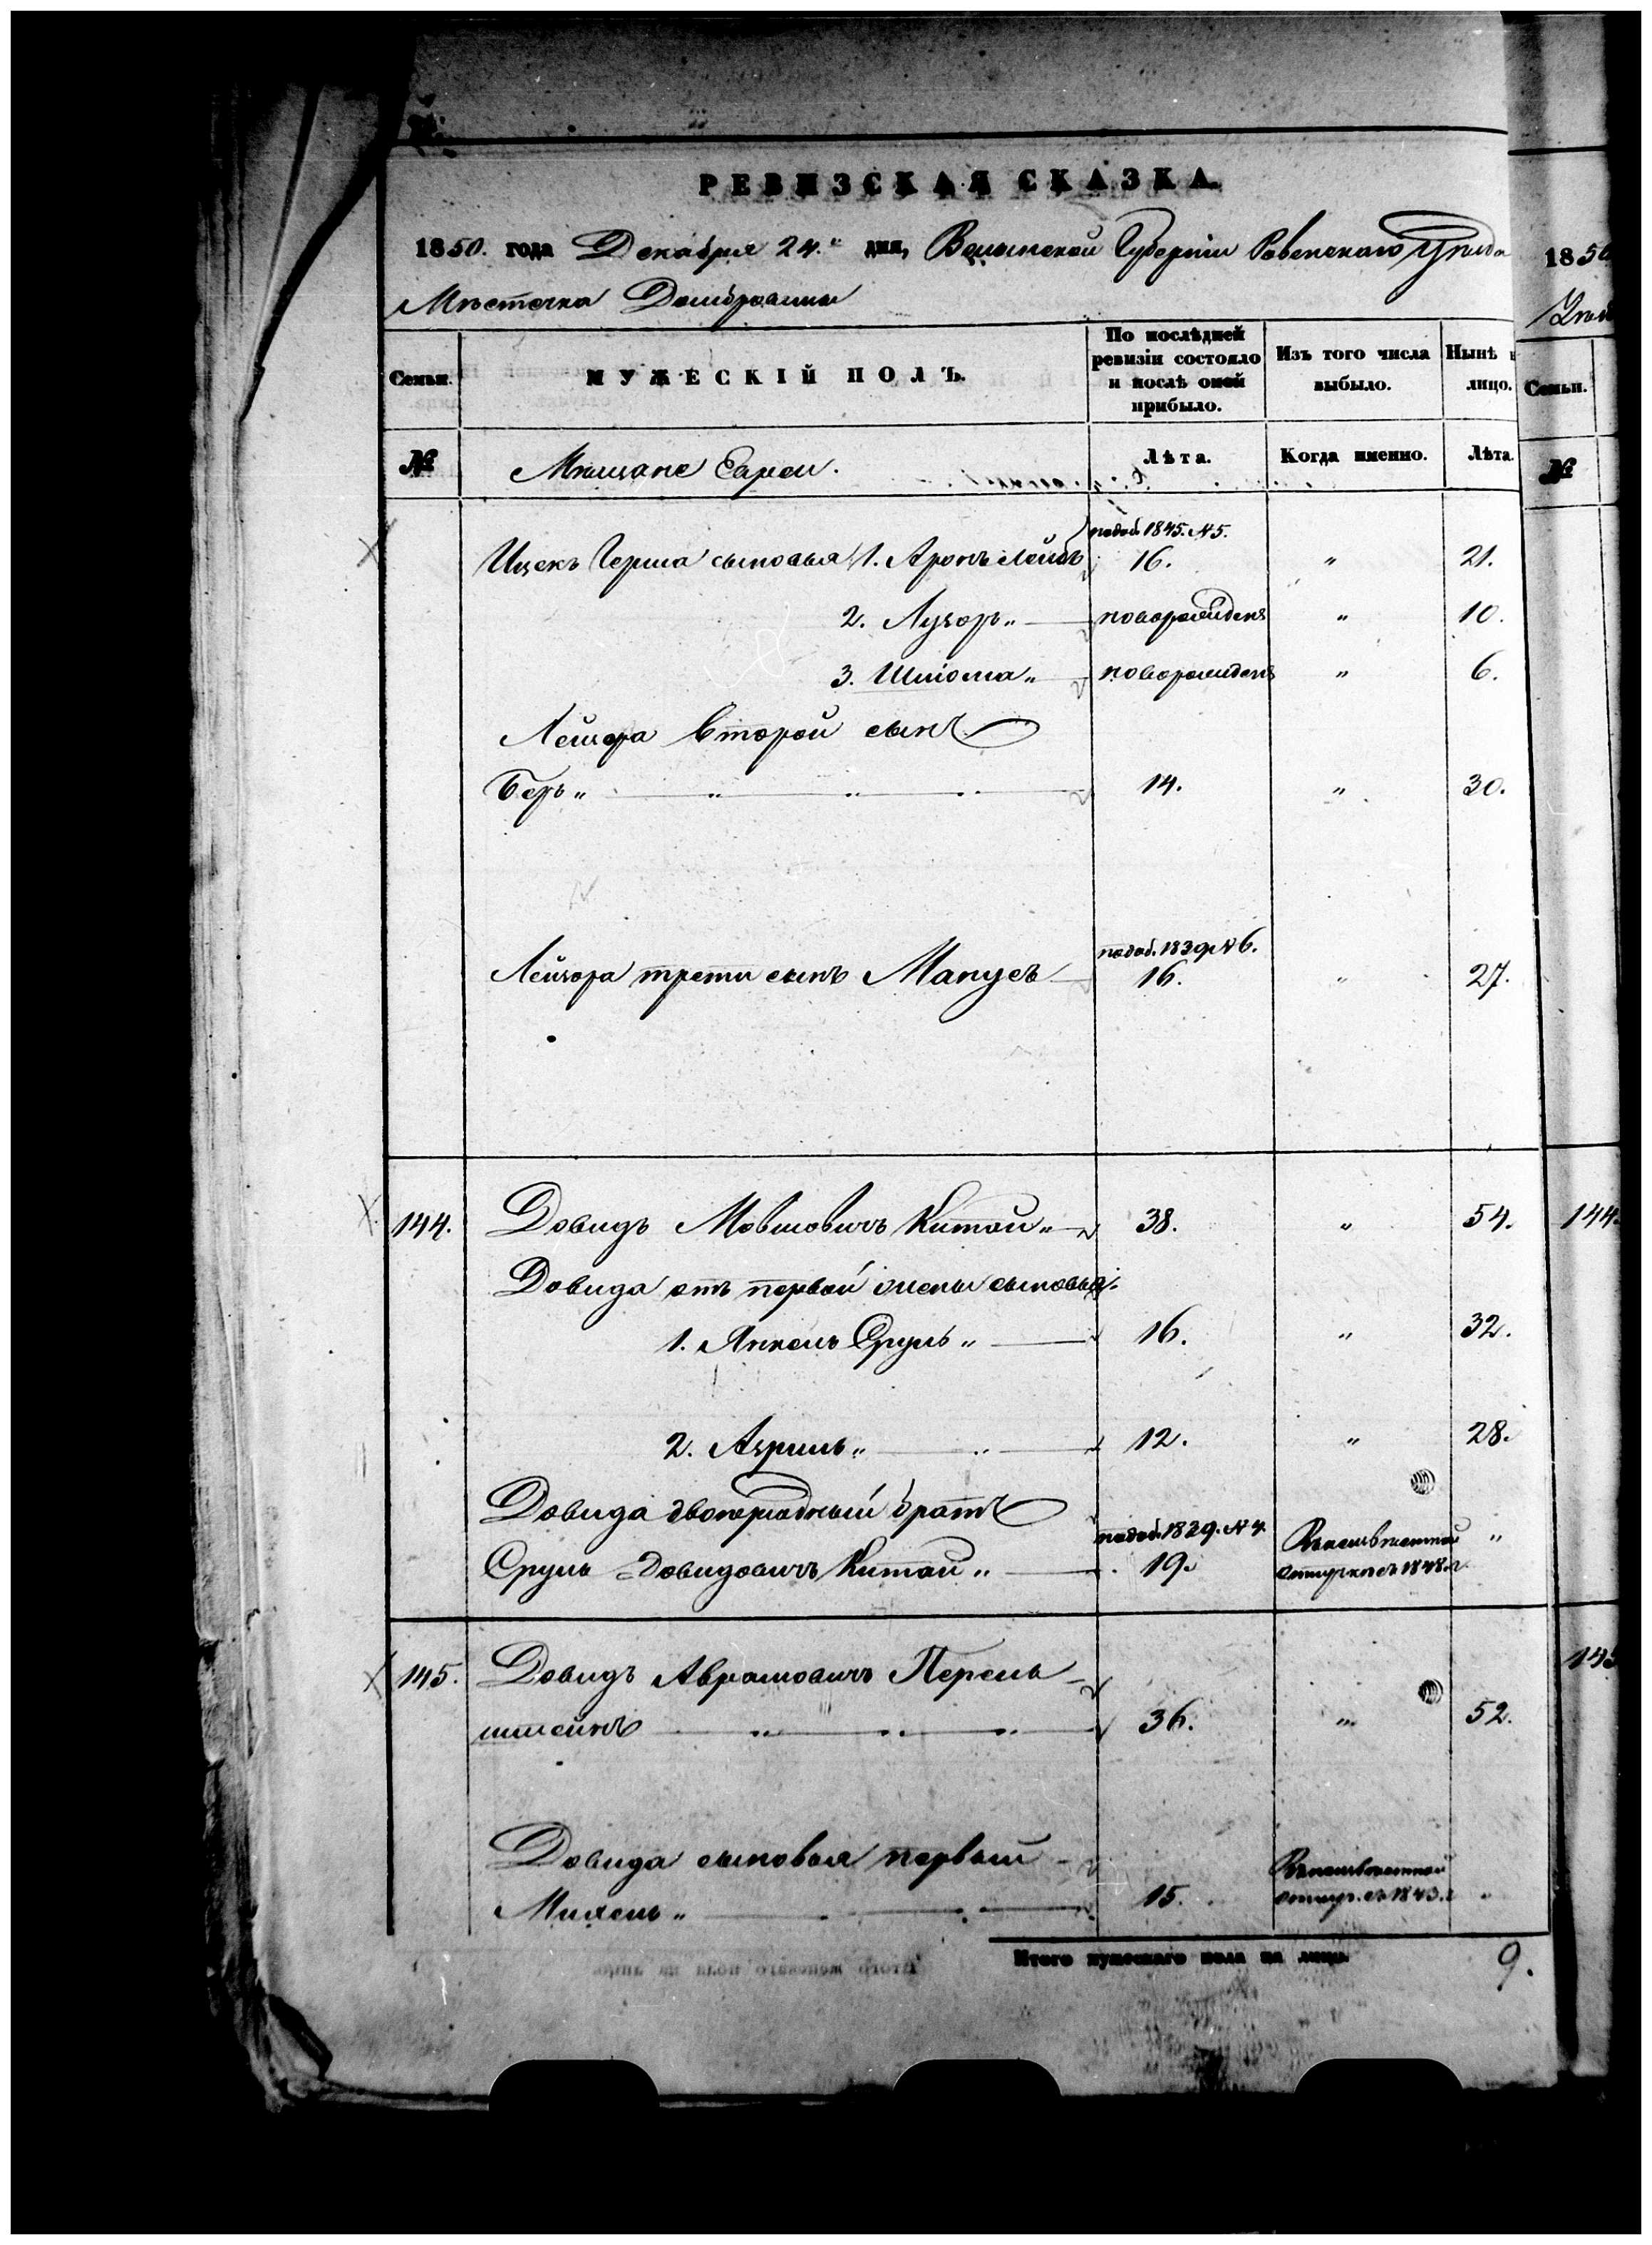 РЕВИЗСКАЯ СКАЗКА.
1850. года Декабря 24.го дня, Волынской Губерніи Ровенского Уѣзда
Мѣстечка Домбровицы
Семьи.
МУЖЕСКІЙ ПОЛЪ.
По послѣдней ревизіи состояло и послѣ оной прибыло.
Изъ того числа выбыло.
Нынѣ
лицо.
№
Мѣщане Евреи.
Лѣта.
Когда именно.
Лѣта.
1845. №5.
Ицекъ Герша сыновья 1. Аронъ Лейбъ 16. " 21.
2. Лузоръ " новорожденъ " 10.
3. Шліома " новорожденъ " 6.
Лейзора второй сынъ
Беръ " " " " 14. " 30.
1839 №6.
Лейзора трети сынъ Манусъ 16. " 27.
144. Довидъ Мовшовичъ Китай " 38. " 54.
Довида отъ первой жены сыновья:
1. Янкель Сруль " 16. " 32.
2. Азриль " " 12. " 28.
Довида двоюродный братъ
1839. №4.
Сруль Довидовичъ Китай " 19. съ 1848. г. "
145. Довидъ Аврамовичъ Перель
штейнъ " " " 36. " 52.
Довида сыновья первый
Михель " 15. съ 1843. г "
Итого мужескаго пола на лицо 9.
1850
Семьи.
№
144.
145